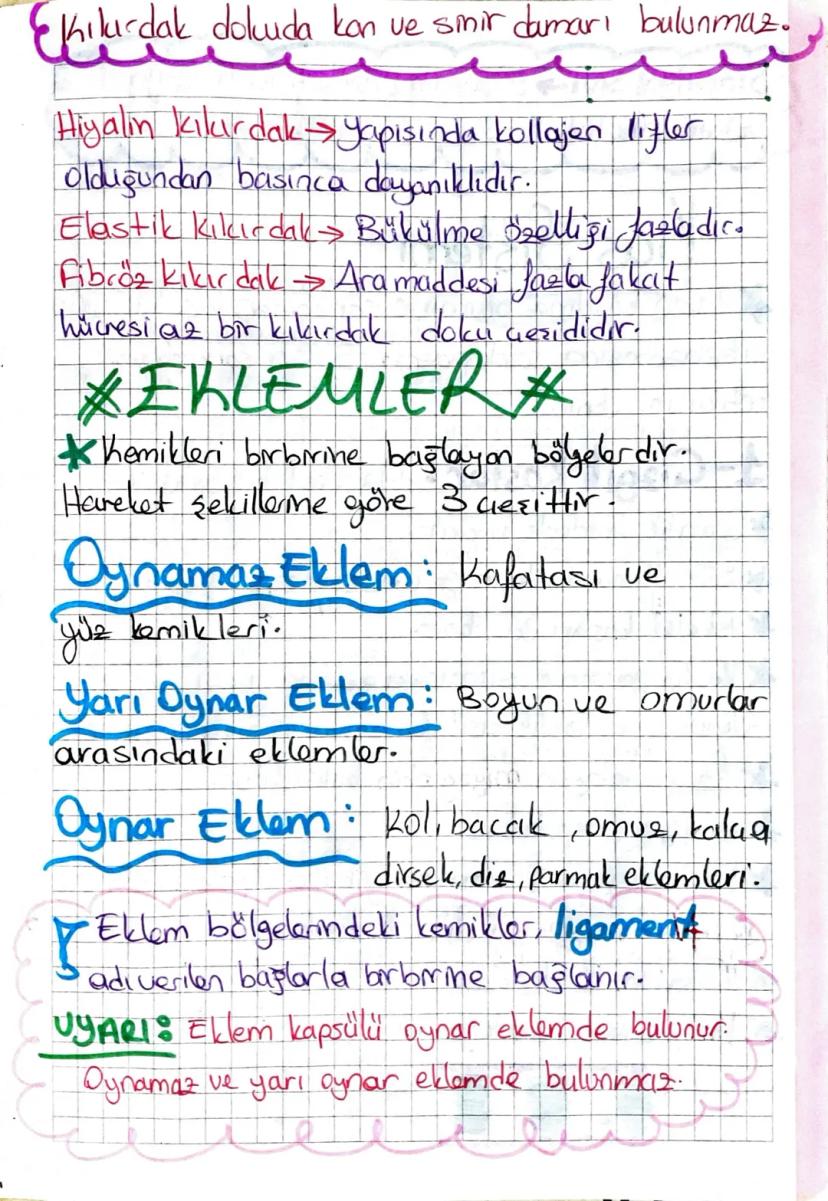 Kıkırdak dokuda kan ve sinir damarı bulunmaz.
Hiyalin kıkırdak → yapısında kollajen lifler
olduğundan basınca dayanıklıdır.
Elastik kıkırdak → Bükülme özelliği fazladır.
Fibröz kıkırdak → Ara maddesi fazla fakat
hücresi az bir kıkırdak doku çeşididir.
# EKLEMLER #
* Kemikleri birbirine bağlayan bölgelerdir.
Hareket şekillerine göre 3 çeşittir.
Oynamaz Eklem: Kafatası ve
yüz kemikleri.
Yarı Oynar Eklem: Boyun ve omurlar
arasındaki eklemler.
Oynar Eklem: Kol, bacak, omuz, kalça
dirsek, diz, parmak eklemleri.
Eklem bölgelerindeki kemikler, ligament
adı verilen bağlarla birbirine bağlanır.
UYARI: Eklem kapsülü oynar eklemde bulunur.
Oynamaz ve yarı oynar eklemde bulunmaz.